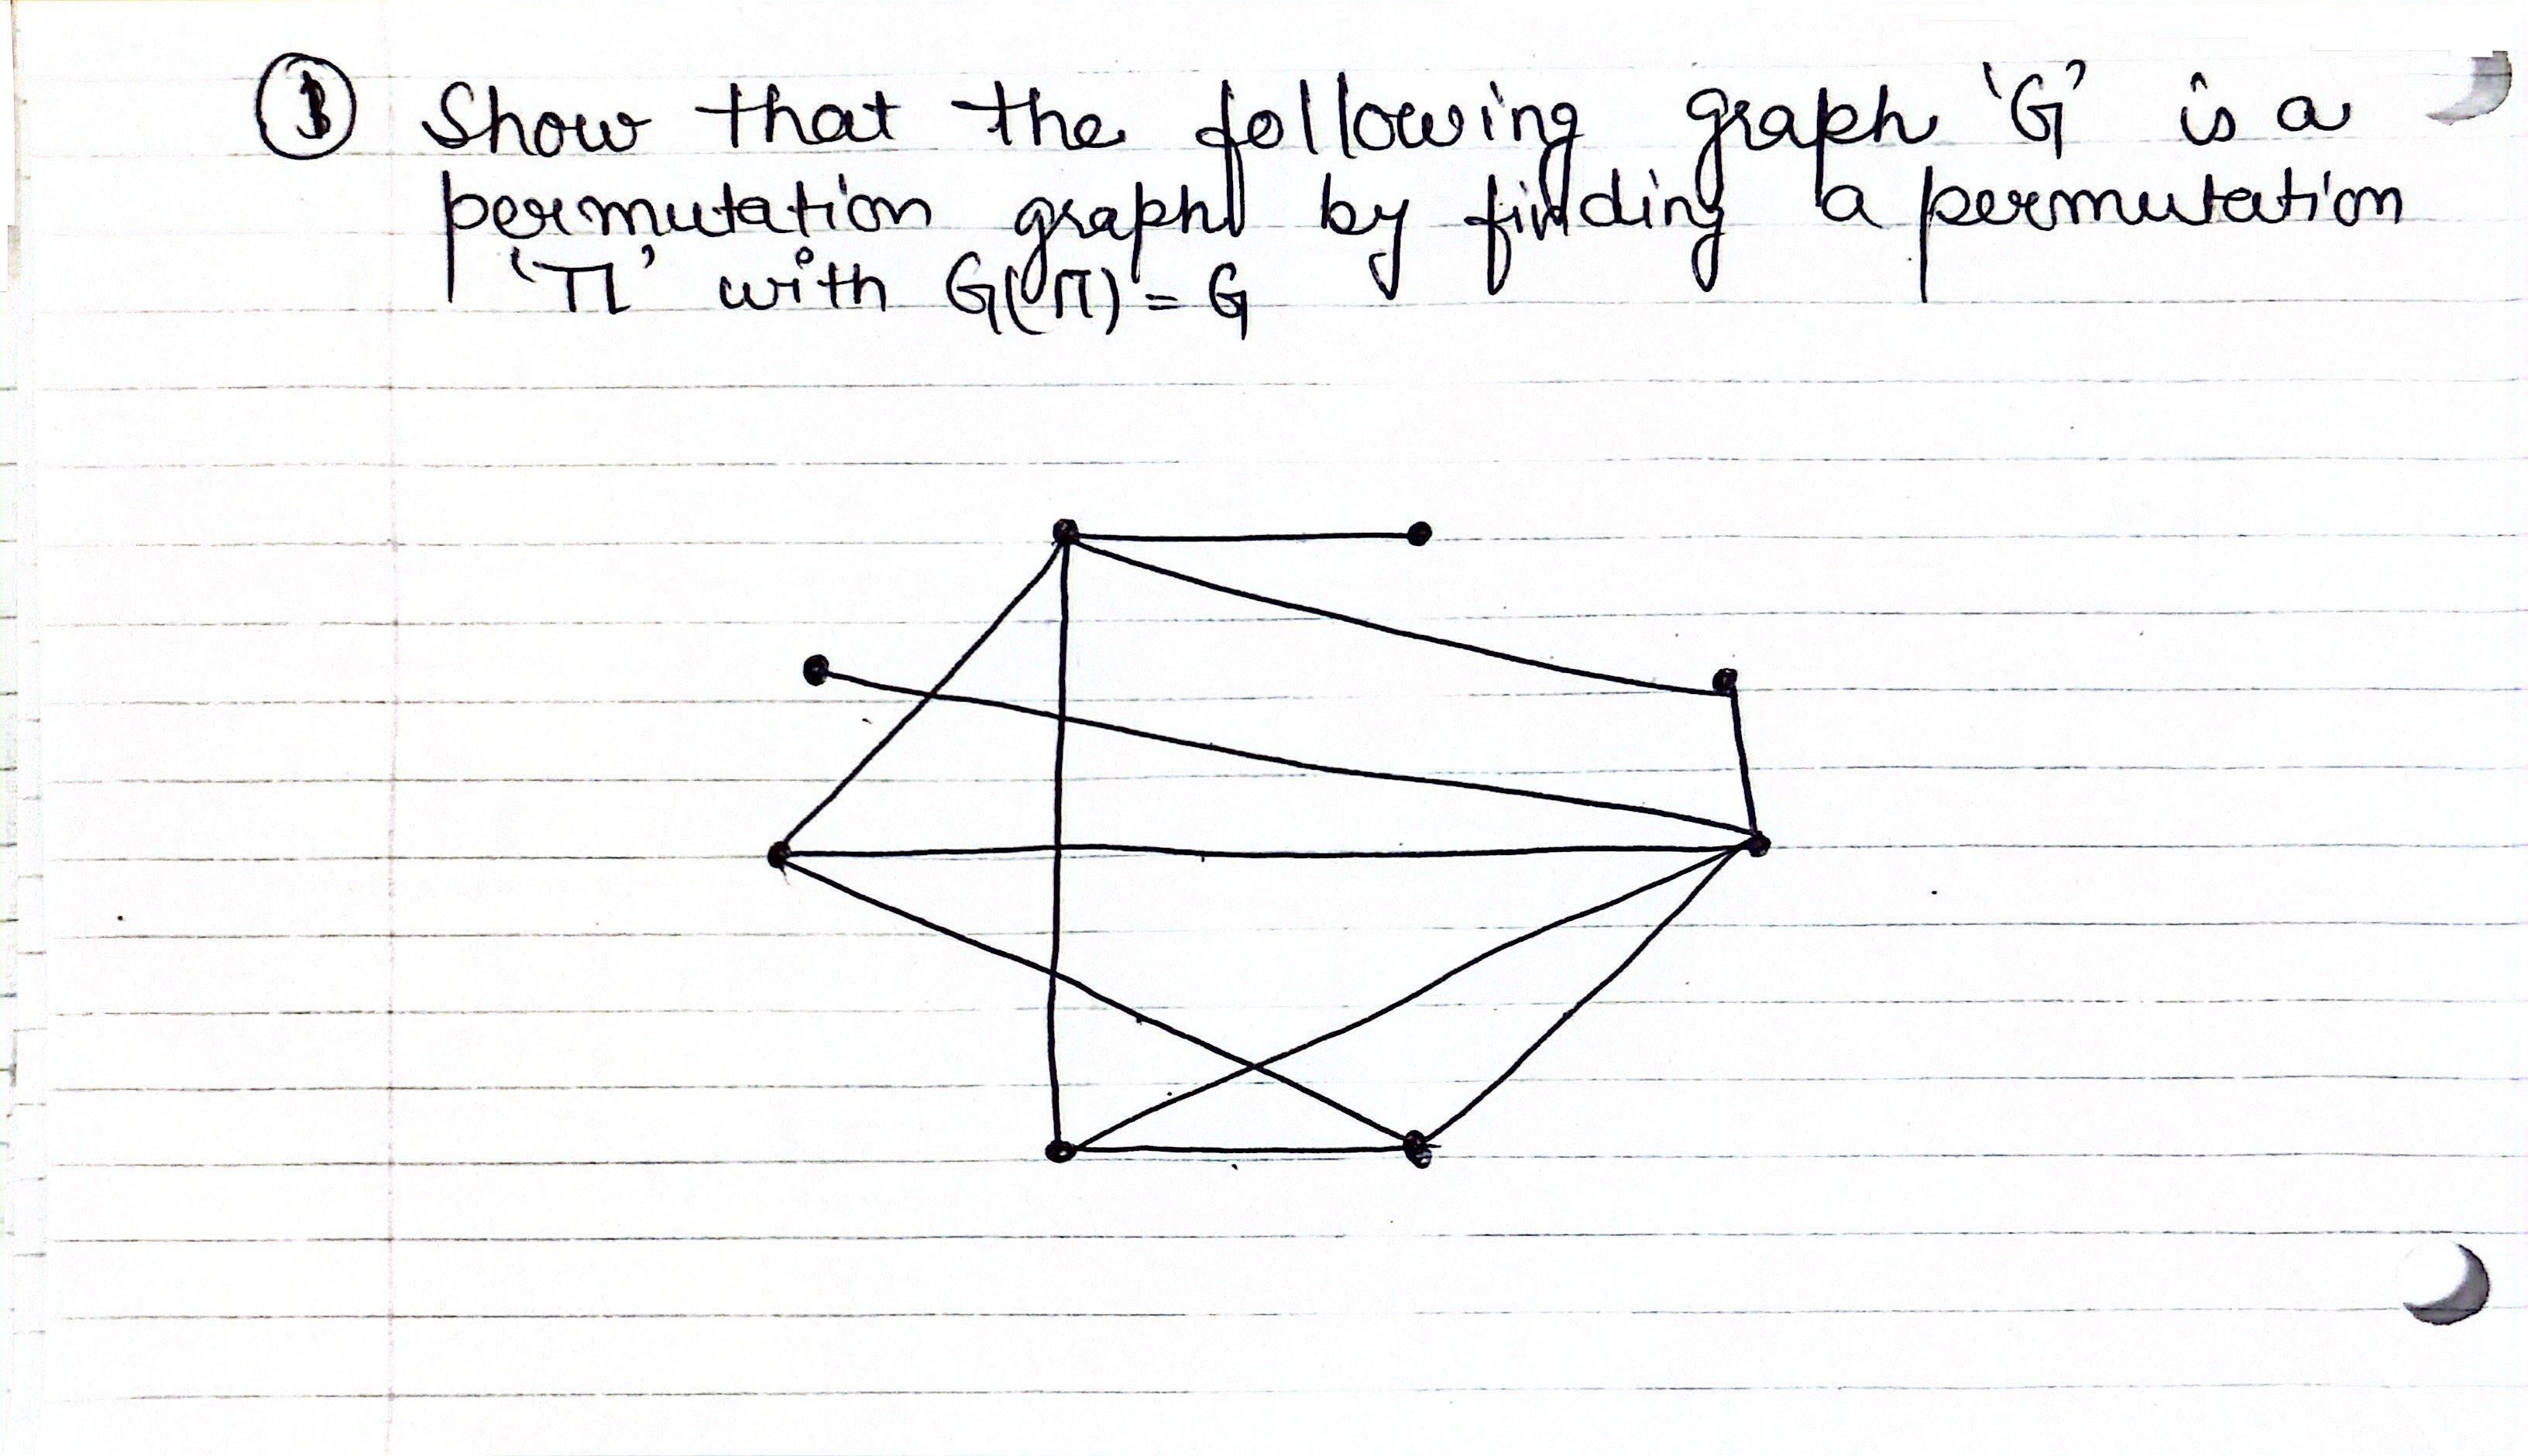 ① Show that the following graph 'G' is a
permutation graph by finding a permutation
'π' with G(π) = G